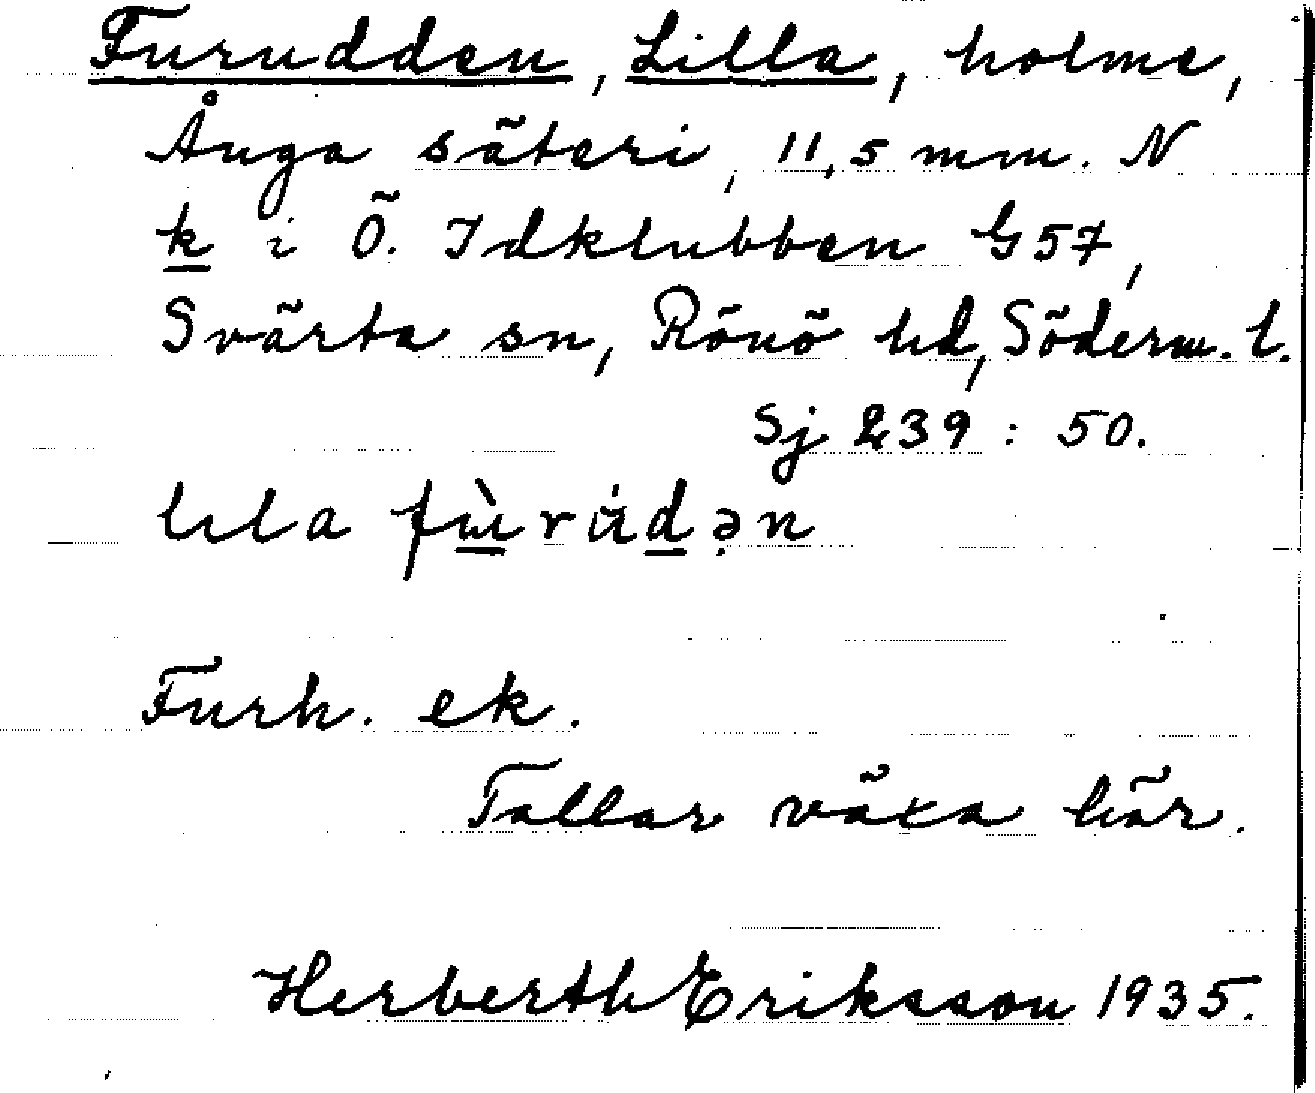 Furudden, Lilla, holme,
Ånga säteri, 11,5 mm. N
k i Ö. Idklubben G57,
Svärta sn, Rönö hd, Söderm. l.
Sj 239 : 50.
lıla fùrúdən
Furh. ek.
Tallar växa här.
Herberth Eriksson 1935.